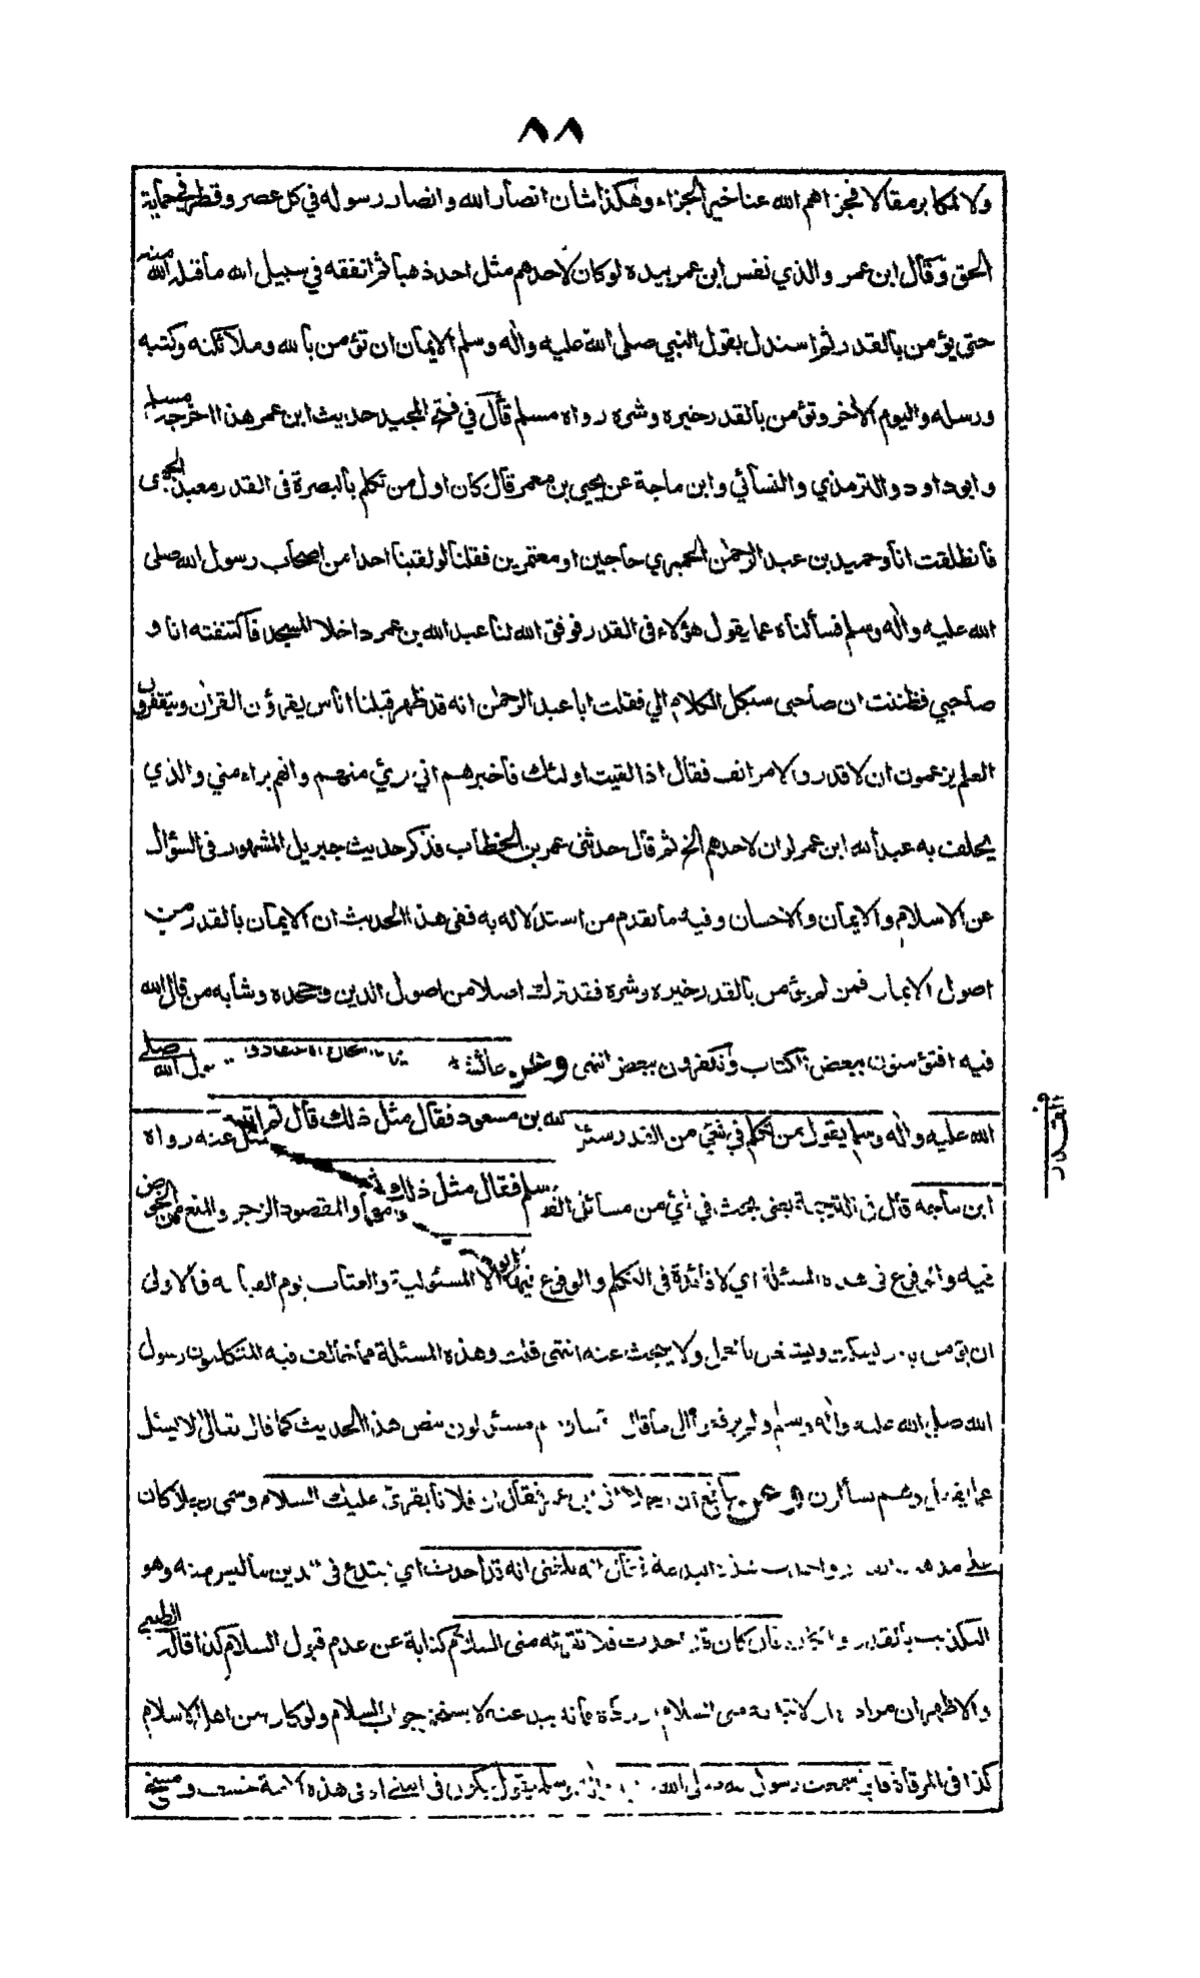 ٨٨
ولا لمكابر مقالا فجزاهم الله عنا خير الجزاء وهكذا شأن انصار الله وانصار رسوله في كل عصر وقطر في حماية
الحق وقال ابن عمر والذي نفس ابن عمر بيده لو كان لاحدهم مثل احد ذهبا ثم انفقه في سبيل الله ما قبله الله منه
حتى يؤمن بالقدر ثم استدل بقول النبي صلى الله عليه واله وسلم الايمان ان تؤمن بالله وملائكته وكتبه
ورسله واليوم الاخر وتؤمن بالقدر خيره وشره رواه مسلم قال في فتح المجيد حديث ابن عمر هذا اخرجه مسلم
وابو داود والترمذي والنسائي وابن ماجة عن يحيى بن معمر قال كان اول من تكلم بالبصرة فى القدر معبد الجهنى
فانطلقت انا وحميد بن عبد الرحمن الحميري حاجين او معتمرين فقلنا لو لقينا احدا من اصحاب رسول الله صلى
الله عليه واله وسلم فسألناه عما يقول هؤلاء فى القدر فوفق الله لنا عبد الله بن عمر داخلا المسجد فاكتنفته انا و
صاحبي فظننت ان صاحبى سيكل الكلام الي فقلت ابا عبد الرحمن انه قد ظهر قبلنا اناس يقرؤن القران ويتقفرون
العلم يزعمون ان لا قدر والامر انف فقال اذا لقيت اولئك فاخبرهم اني بريء منهم وانهم براء مني والذي
يحلف به عبد الله ابن عمر لو ان لاحدهم الخ ثم قال حدثنى عمر بن الخطاب فذكر حديث جبريل المشهور فى السؤال
عن الاسلام والايمان والاحسان وفيه ما تقدم من استدلاله به ففى هذا الحديث ان الايمان بالقدر من
اصول الايمان فمن لم يؤمن بالقدر خيره وشره فقد ترك اصلا من اصول الدين وجحده وشابه من قال الله
فيه افتؤمنون ببعض الكتاب وتكفرون ببعض انتهى وعن عائشة رسول الله صلى
الله عليه واله وسلم يقول من تكلم في شيء من القدر سئل الله بن مسعود فقال مثل ذلك قال ثم اتيت مثل عنه رواه
ابن ماجه قال فى الترجمة يعنى بحث في شيء من مسائل القدر وسلم فقال مثل ذلك والمقصود الزجر والمنع عن الخوض
فيه والوقوع فى هذه المسئلة اي لا فائدة فى التكلم والوقوع فيها الا المسئولية والعتاب يوم القيامة فالاولى
ان يؤمن به ويسكت ولا يبحث عنه انتهى قلت وهذه المسئلة مما خالف فيه المتكلمون رسول
الله صلى الله عليه واله وسلم ما قال مسئولون بنص هذا الحديث كما قال تعالى لا يسئل
عما يفعل وهم يسألون وعن نافع ان رجلا اتى ابن عمر فقال ان فلانا يقرئ عليك السلام وسمى رجلا كان
على البدعة فقال انه بلغنى انه قد احدث اي ابتدع فى الدين ما ليس منه وهو
التكذيب بالقدر فان كان قد احدث فلا تقرئه منى السلام كناية عن عدم قبول السلام كذا قاله الطيبي
والاظهر ان مراده ان لا تبلغه منى السلام لا يستحق جواب السلام ولو كان من اهل الاسلام
كذا فى المرقاة فاني سمعت رسول الله صلى الله يقول يكون فى امتي او فى هذه الامة خسف و مسخ
القدر